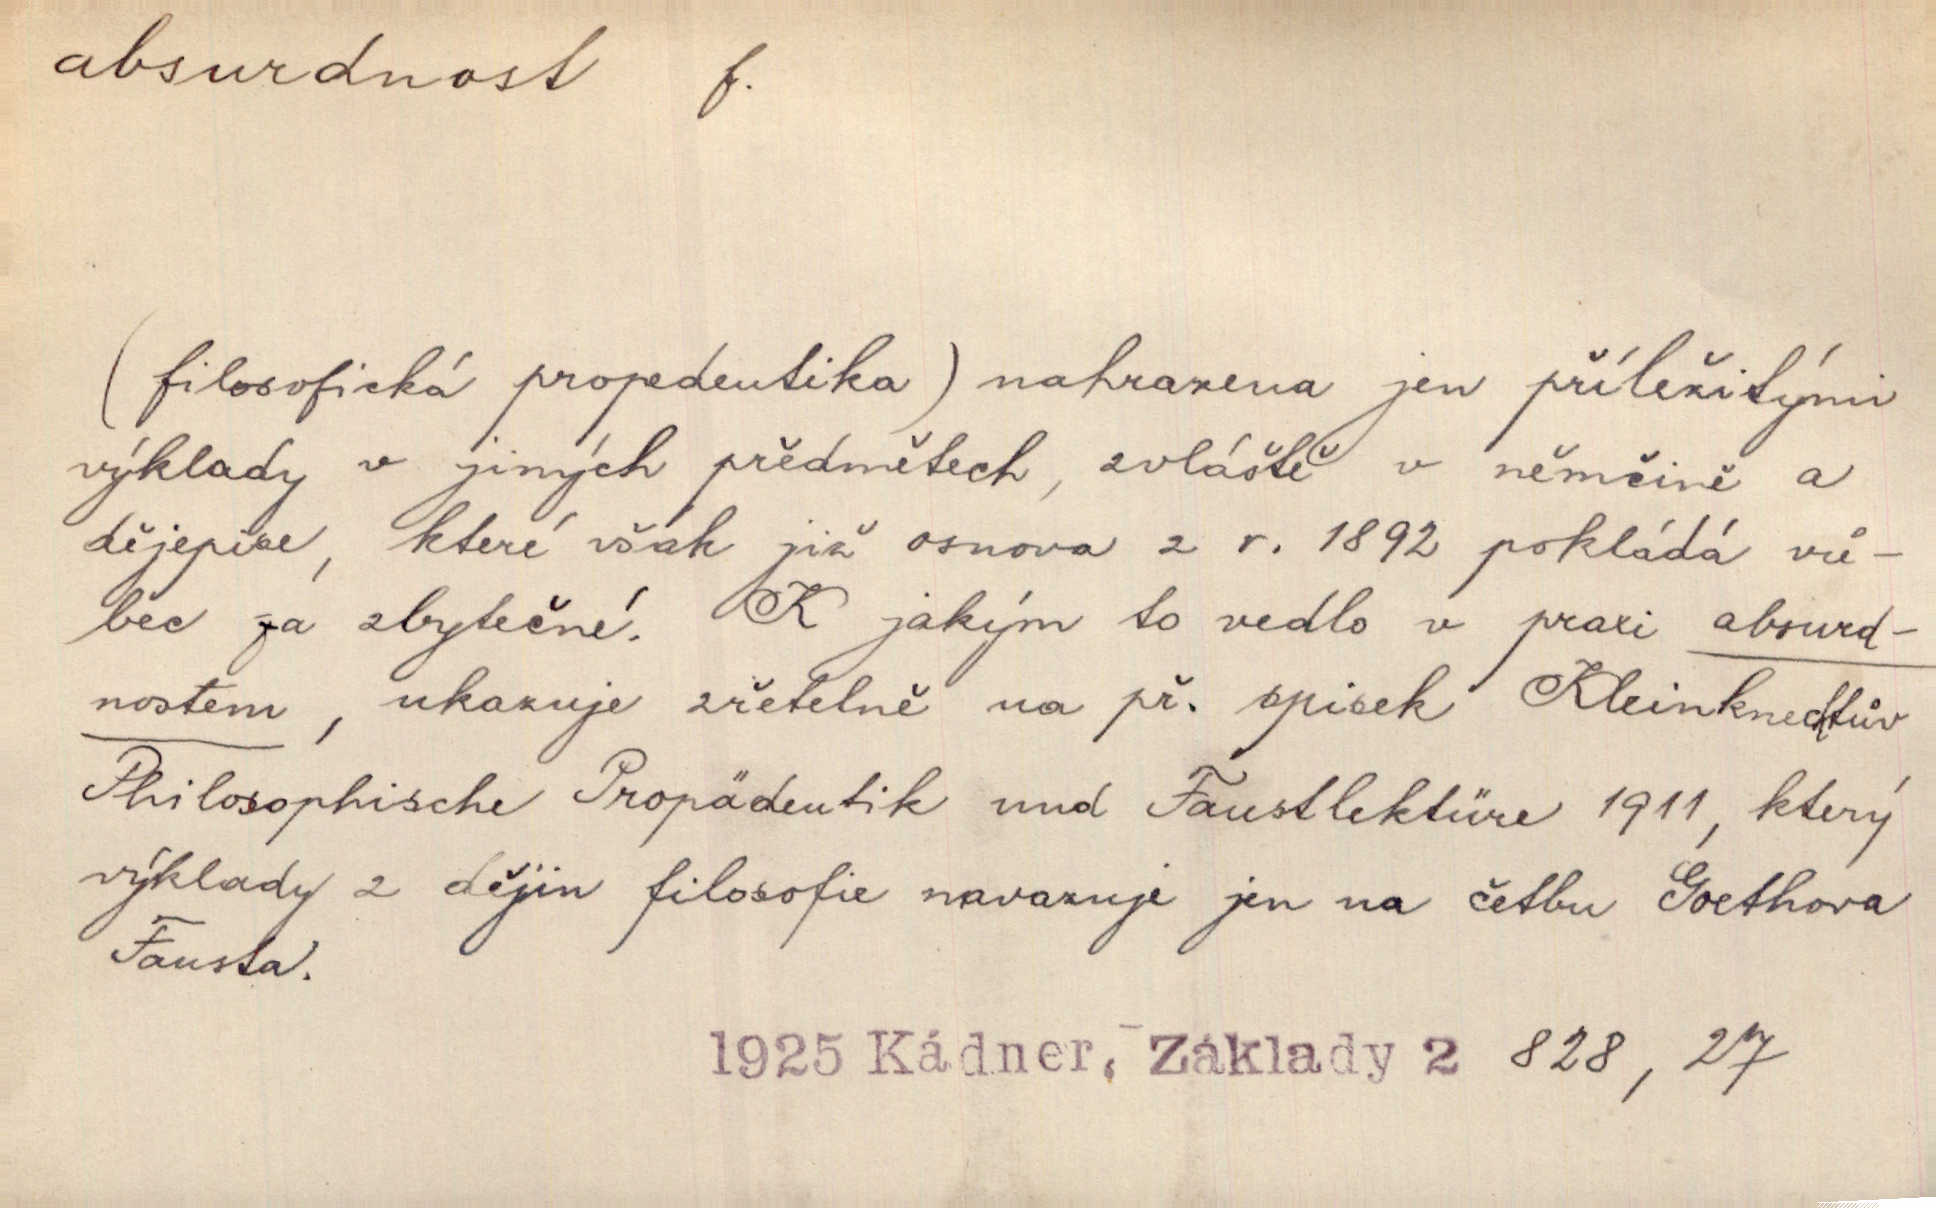 absurdnost f.
(filosofická propedeutika) nahrazena jen příležitými
výklady v jiných předmětech, zvláště v němčině a
dějepise, které však již osnova z r. 1892 pokládá vů-
bec za zbytečné. K jakým to vedlo v praxi absurd-
nostem, ukazuje zřetelně na př. spisek Kleinknechtův
Philosophische Propädeutik und Faustlektüre 1911, který
výklady z dějin filosofie navazuje jen na četbu Goethova
Fausta.
1925 Kádner, Základy 2 828, 27